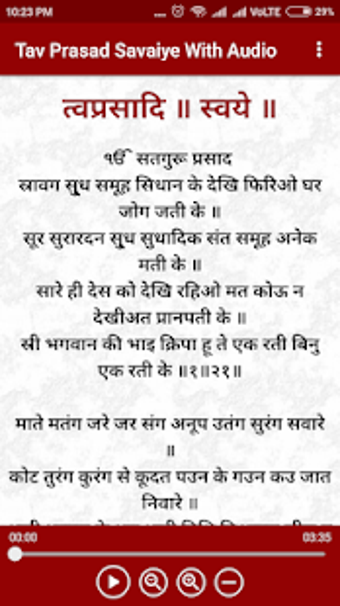 10:23 PM ... VoLTE 29%
Tav Prasad Savaiye With Audio
त्वप्रसादि ॥ स्वये ॥
ੴ सतगुरू प्रसाद
स्रावग सुध समूह सिधान के देखि फिरिओ घर
जोग जती के ॥
सूर सुरारदन सुध सुधादिक संत समूह अनेक
मती के ॥
सारे ही देस को देखि रहिओ मत कोऊ न
देखीअत प्रानपती के ॥
स्री भगवान की भाइ क्रिपा हू ते एक रती बिनु
एक रती के ॥१॥२१॥
माते मतंग जरे जर संग अनूप उतंग सुरंग सवारे
॥
कोट तुरंग कुरंग से कूदत पउन के गउन कउ जात
निवारे ॥
00:00 03:35